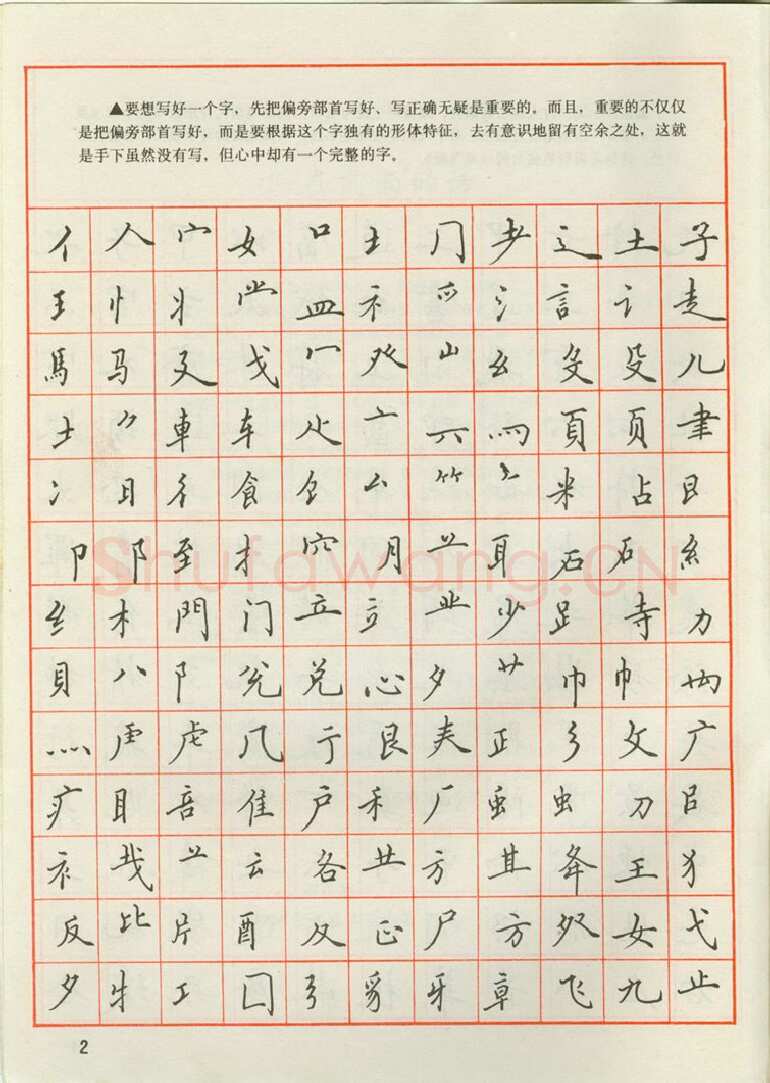 ▲要想写好一个字，先把偏旁部首写好、写正确无疑是重要的。而且，重要的不仅仅
是把偏旁部首写好，而是要根据这个字独有的形体特征，去有意识地留有空余之处，这就
是手下虽然没有写，但心中却有一个完整的字。
亻 人 宀 女 口 土 冂 耂 辶 土 子
王 忄 丬 龸 皿 礻 爫 氵 言 讠 走
馬 马 廴 戈 冖 癶 山 幺 殳 殳 儿
士 車 车 亠 六 罒 頁 页 聿
冫 日 彳 食 厶 ⺮ 米 占 艮
卩 阝 至 扌 穴 月 䒑 耳 石 石 糹
纟 木 門 门 立 立 业 少 𧾷 寺 力
貝 八 阝 兑 心 夕 艹 巾 巾
灬 虍 虍 几 亍 艮 夫 正 彡 文 广
疒 目 音 隹 户 禾 厂 虫 虫 刀
衤 亠 云 各 龷 方 其 夅 王 犭
反 比 片 酉 及 正 尸 方 女 弋
夕 牛 工 囗 弓 豸 牙 章 飞 九 止
2
Shufawang.CN